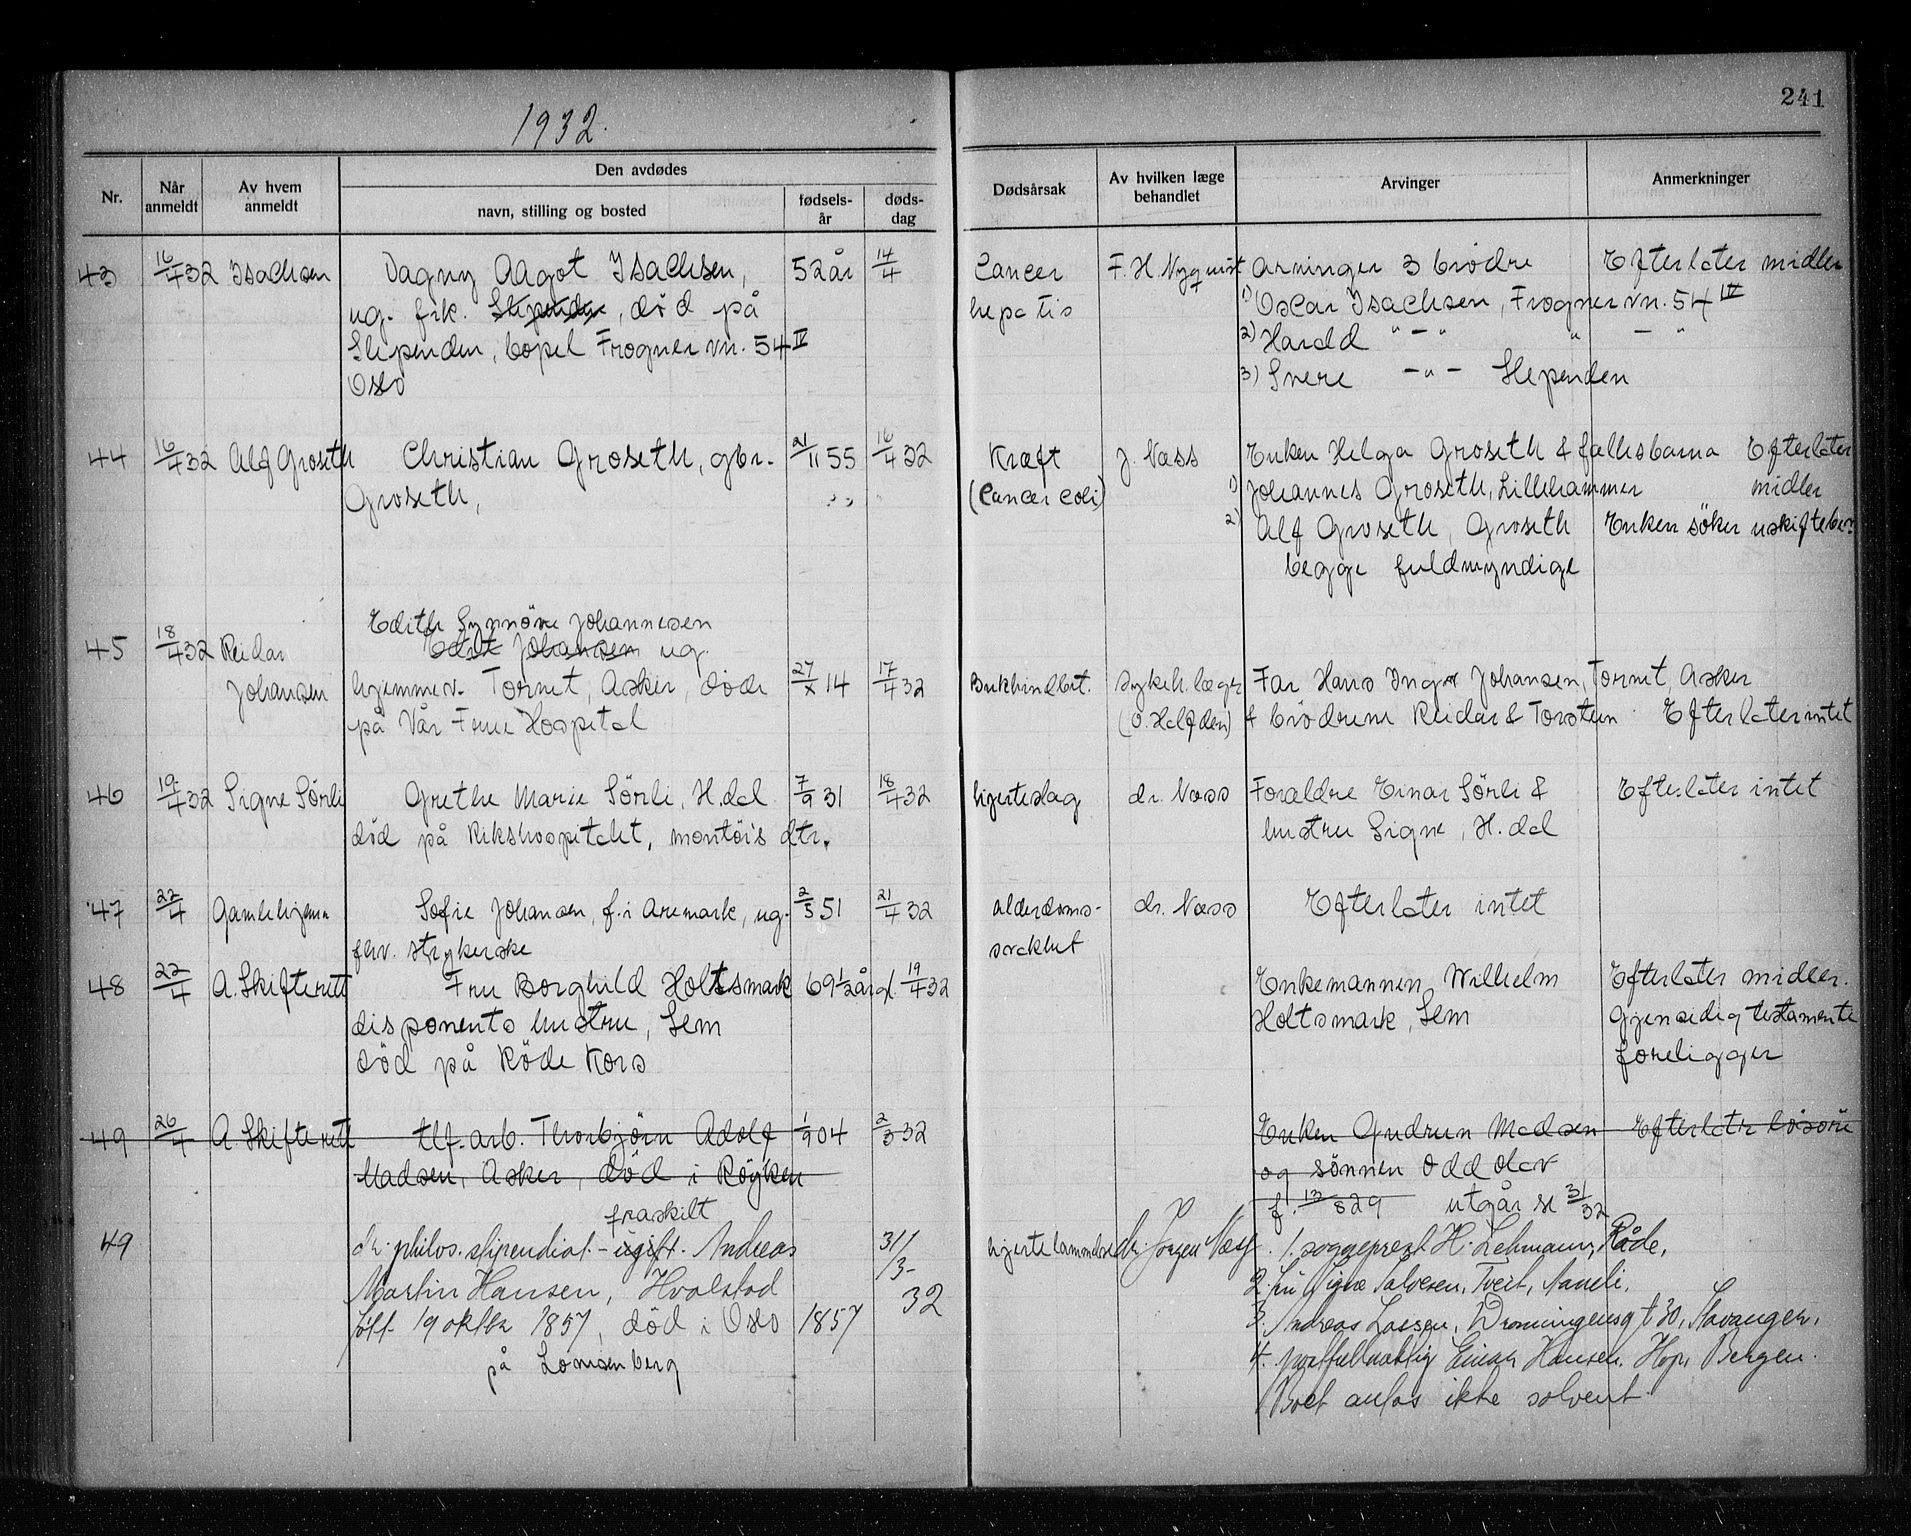 241
1932.
Nr. Når anmeldt Av hvem anmeldt Den avdødes navn, stilling og bosted fødselsår dødsdag Dødsårsak Av hvilken læge behandlet Arvinger Anmerkninger
43 16/4 32 Isachsen Dagny Aagot Isachsen, 52 år 14/4 Cancer F. H. Nyquist arvinger 3 brødre Efterlater midler
ug. frk. Slependen, död på hepatis 1) Oscar Isachsen, Frogner vn. 54 IV
Slependen, bopel Frogner vn. 54 IV 2) Harald " — " " — "
Oslo 3) Svere — " — Slependen
44 16/4 32 Alf Groseth Christian Groseth, gbr. 21/11 55 16/4 32 Kræft J. Næss Enken Helga Groseth & fællesbarna Efterlater
Groseth, (Cancer coli) 1) Johannes Groseth, Lillehammer midler
2) Alf Groseth, Groseth Enken söker uskiftebev.
begge fuldmyndige
Edith Synnöve Johannesen
45 18/4 32 Reidar Edit Johansen ug.
Johansen hjemmev. Tornet, Asker, döde 27/X 14 17/4 32 Bukhindbet. sykeh. læger Far Hans Inga Johansen, Tornet, Asker
på Vår Frue Hospital (O. Halfden) & brödrene Reidar & Torstein Efterlater intet
46 19/4 32 Signe Sörli Grethe Marie Sörli, H.dal 7/9 31 18/4 32 hjerteslag dr. Næss Foraldre Einar Sörli & Efterlater intet
död på Rikshospitalet, montörs dtr. hustru Signe, H.dal
47 22/4 Gamlehjem Sofie Johansen, f. i Aremark, ug. 2/5 51 21/4 32 alderdoms- dr. Næss Efterlater intet
fhv. strykerske svakhet
48 22/4 A. Skifterett Fru Borghild Holtsmark 69 1/2 år d. 19/4 32 Enkemannen Wilhelm Efterlater midler.
disponents hustru, Sem Holtsmark, Sem Gjensidig testamente
död på Röde Kors foreligger
49 26/4 A. Skifterett tlf. arb. Thorbjörn Adolf 1/9 04 2/3 32 Enken Gudrun Madsen Efterlater lösöre
Madsen, Asker, död i Röyken og sönnen Odd Olav
f. 13/8 29 utgår se 31/32
fraskilt
49 dr. philos. stipendiat - ugift. Andreas 31/3- 32 hjertelammelse dr. Jörgen Næss 1. sogneprest H. Lehmann, Råde,
Martin Hansen, Hvalstad 2. fru Signe Salvesen, Tveit, Naneli.
født 19 oktbr 1857, död i Oslo 1857 3. Andreas Larsen, Dronningensgt 30, Stavanger.
på Lovisenberg 4. postfullmektig Einar Hansen, Hop, Bergen.
Boet antas ikke solvent